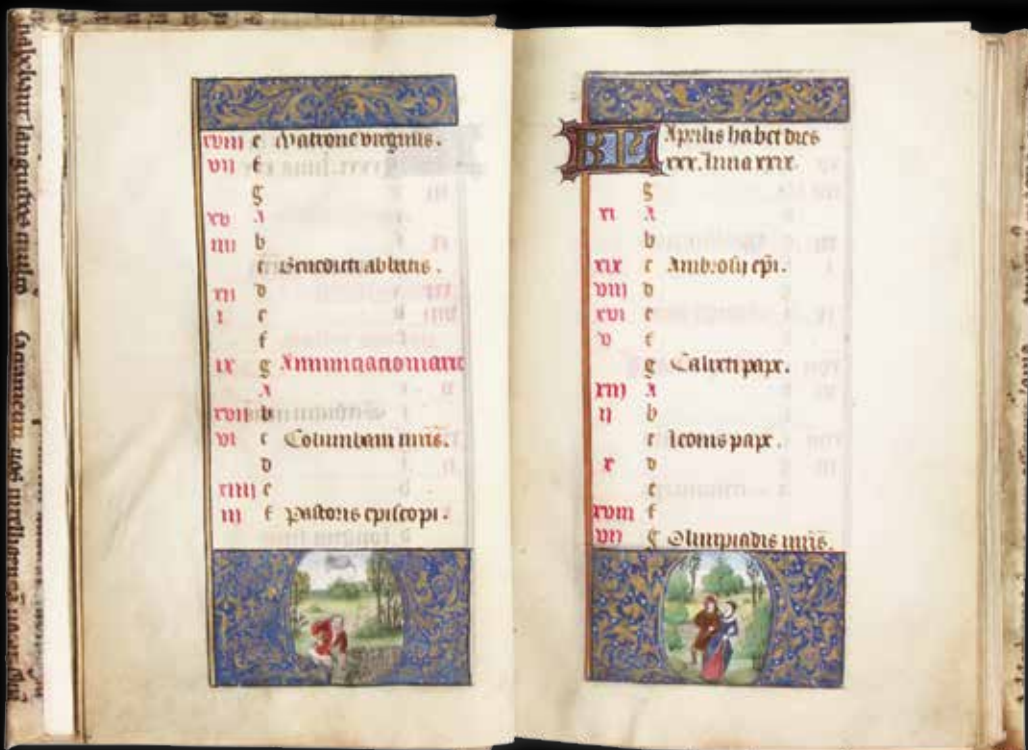 xviii e Matrone virginis.
vii f
g
xv A
iiii b
c Benedicti abbatis.
xii d
i e
f
ix g Annunciatio marie
A
xvii b
vi c Columbani mris.
d
xiiii e
iii f Pastoris episcopi.
KL Aprilis habet dies
xxx. luna xxix.
g
xi A
b
xix c Ambrosii epi.
viii d
xvi e
v f
g Calixti pape.
xiii A
ii b
c Leonis pape.
x d
e
xviii f
vii g Olimpiadis mris.